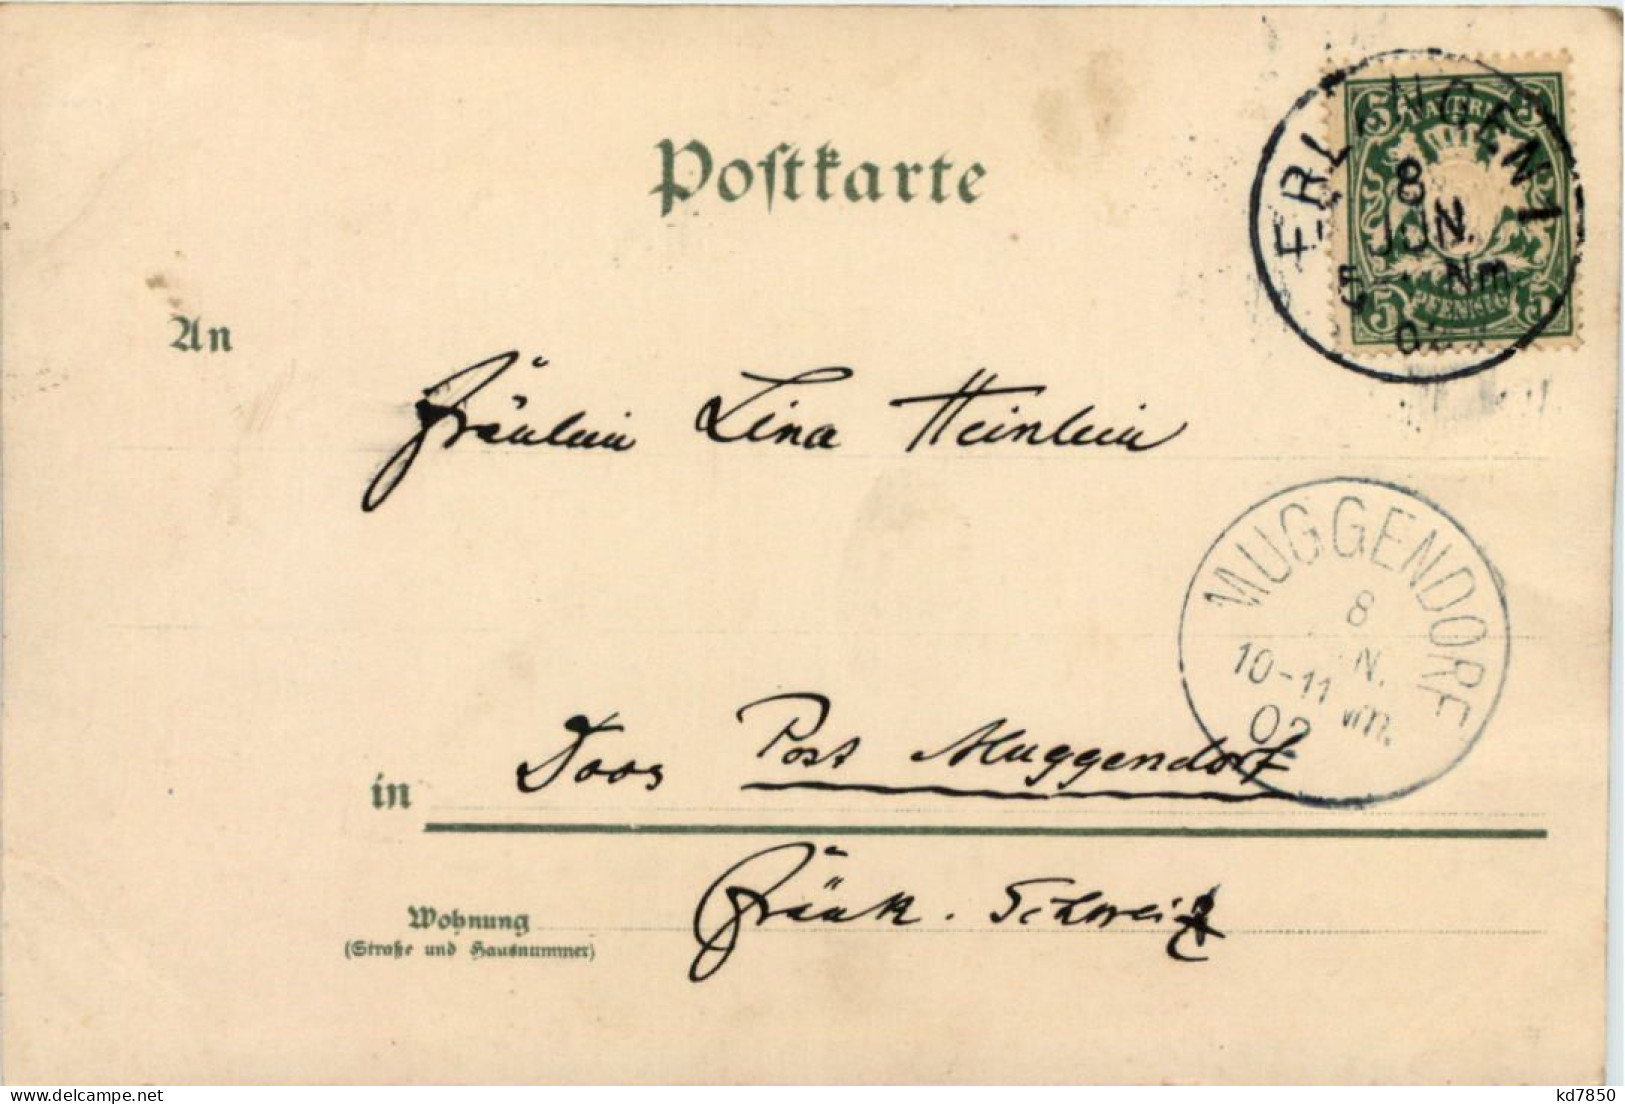 Postkarte
BAYERN
5 5
5 PFENNIG 5
ERLANGEN 1
8
JUN.
5 Nm
02
An
Fräulein Lina Heinlein
MUGGENDORF
8
N.
10-11 Vm.
02
in Doos Post Muggendorf
Fränk. Schweiz
Wohnung
(Straße und Hausnummer)
kd7850